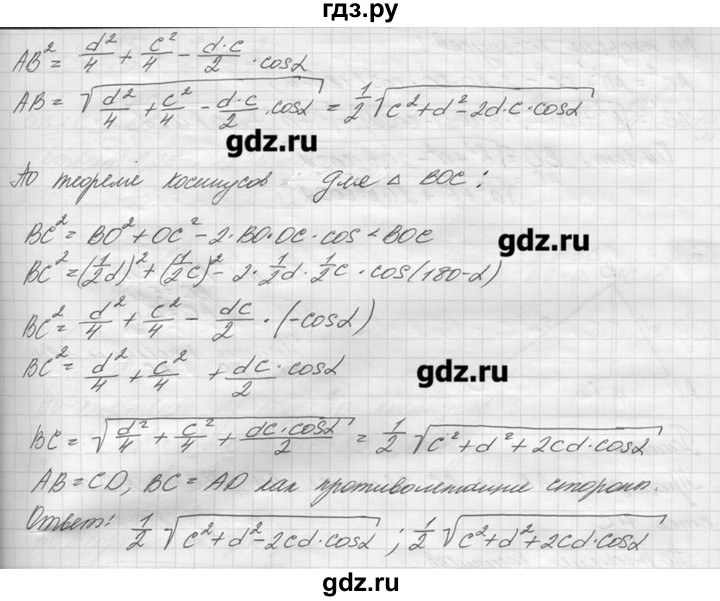 гдз.ру
AB² = d²/4 + c²/4 - d·c/2 · cosα
AB = √(d²/4 + c²/4 - d·c/2 · cosα) = 1/2 √(c² + d² - 2d·c·cosα)
gdz.ru
По теореме косинусов для △ BOC:
BC² = BO² + OC² - 2·BO·OC·cos∠BOC
gdz.ru
BC² = (1/2 d)² + (1/2 c)² - 2·1/2 d·1/2 c·cos(180-α)
BC² = d²/4 + c²/4 - dc/2 · (-cosα)
BC² = d²/4 + c²/4 + dc/2 · cosα
gdz.ru
BC = √(d²/4 + c²/4 + dc·cosα/2) = 1/2 √(c² + d² + 2cd·cosα)
AB = CD, BC = AD как противолежащие стороны.
Ответ: 1/2 √(c² + d² - 2cd·cosα) ; 1/2 √(c² + d² + 2cd·cosα)
gdz.ru